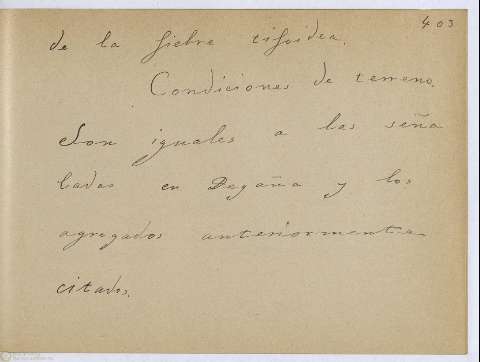 403
de la fiebre tifoidea.
Condiciones de terreno.
Son iguales a las seña
ladas en Degaña y los
agregados anteriormente
citados.